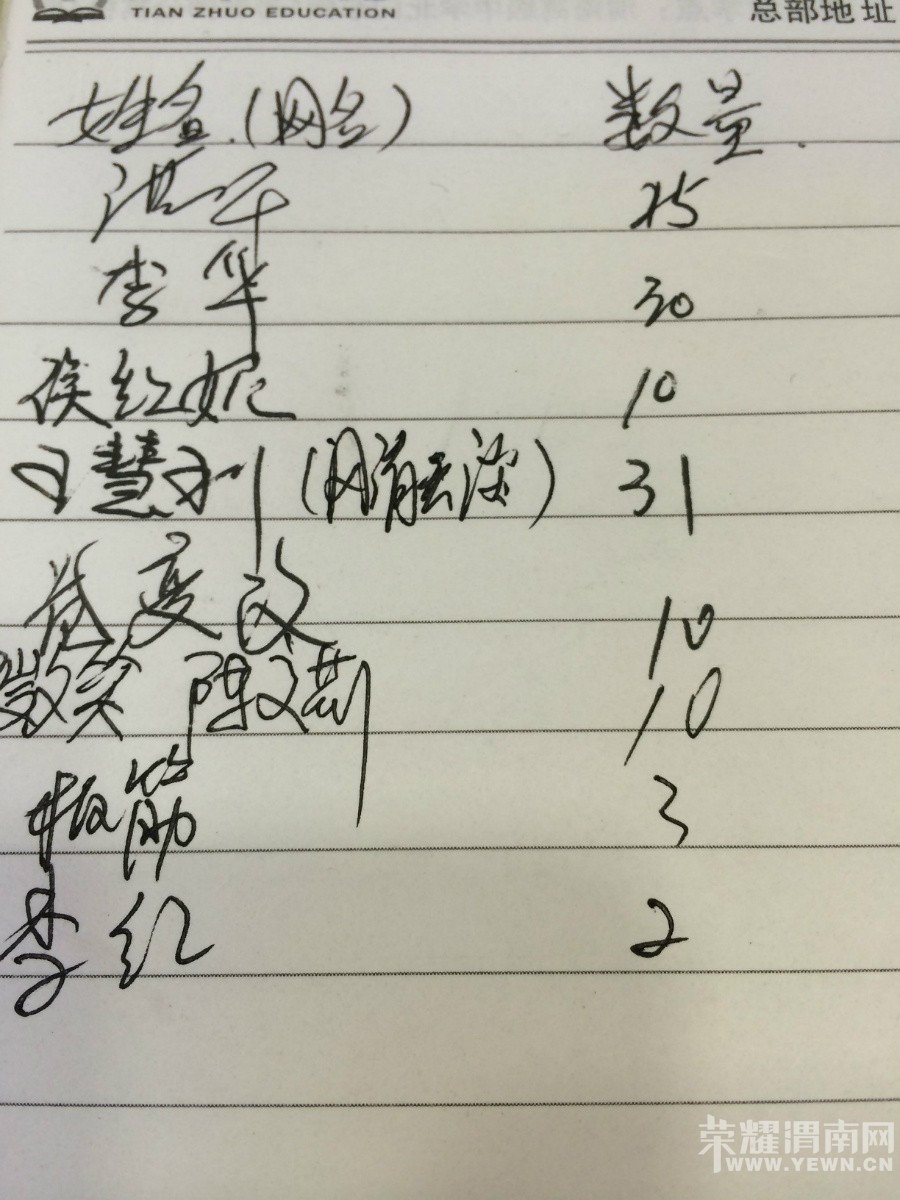 TIAN ZHUO EDUCATION 总部地址
姓名(网名) 数量
洪平 25
李华 30
侯红妮 10
王慧利 31
变改 10
微笑 陈文莉 10
板筋 3
李红 2
荣耀渭南网
WWW.YEWN.CN